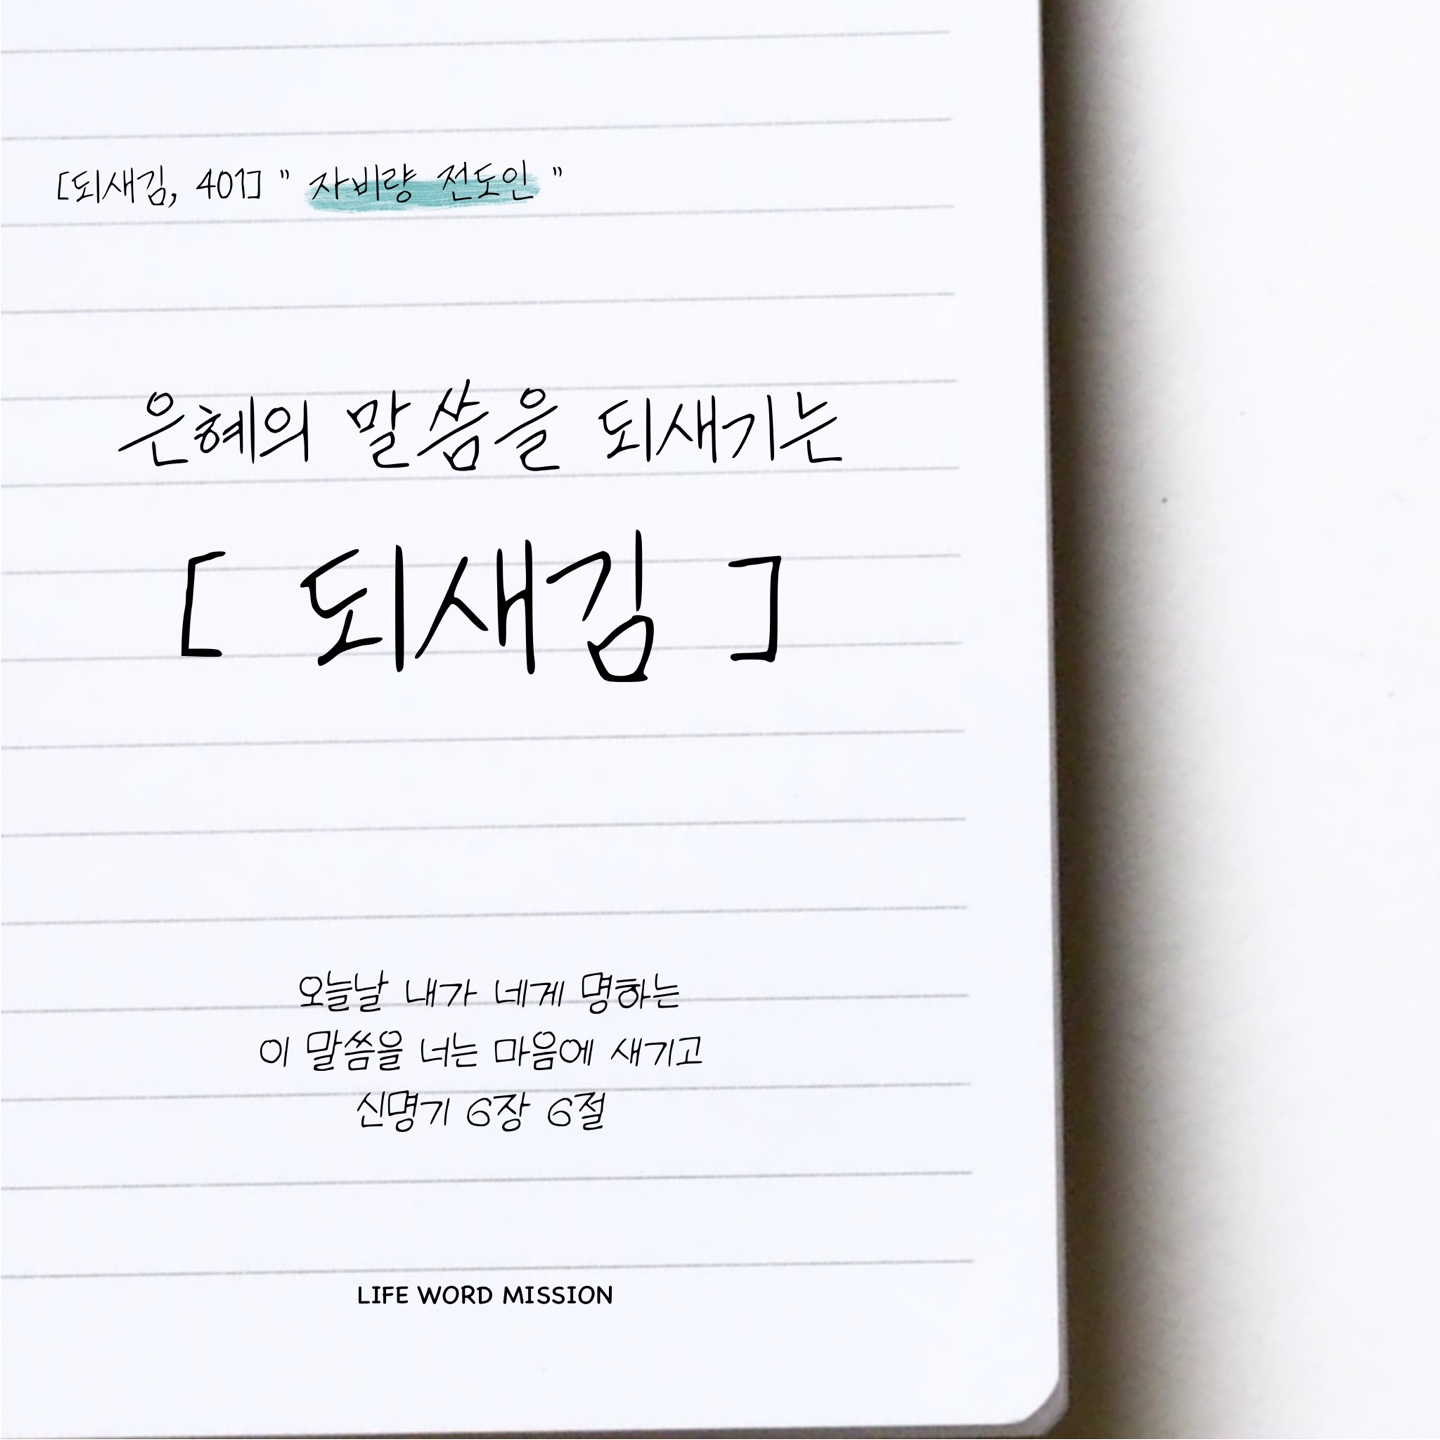 [되새김, 401] " 자비량 전도인 "
은혜의 말씀을 되새기는
[ 되새김 ]
오늘날 내가 네게 명하는
이 말씀을 너는 마음에 새기고
신명기 6장 6절
LIFE WORD MISSION